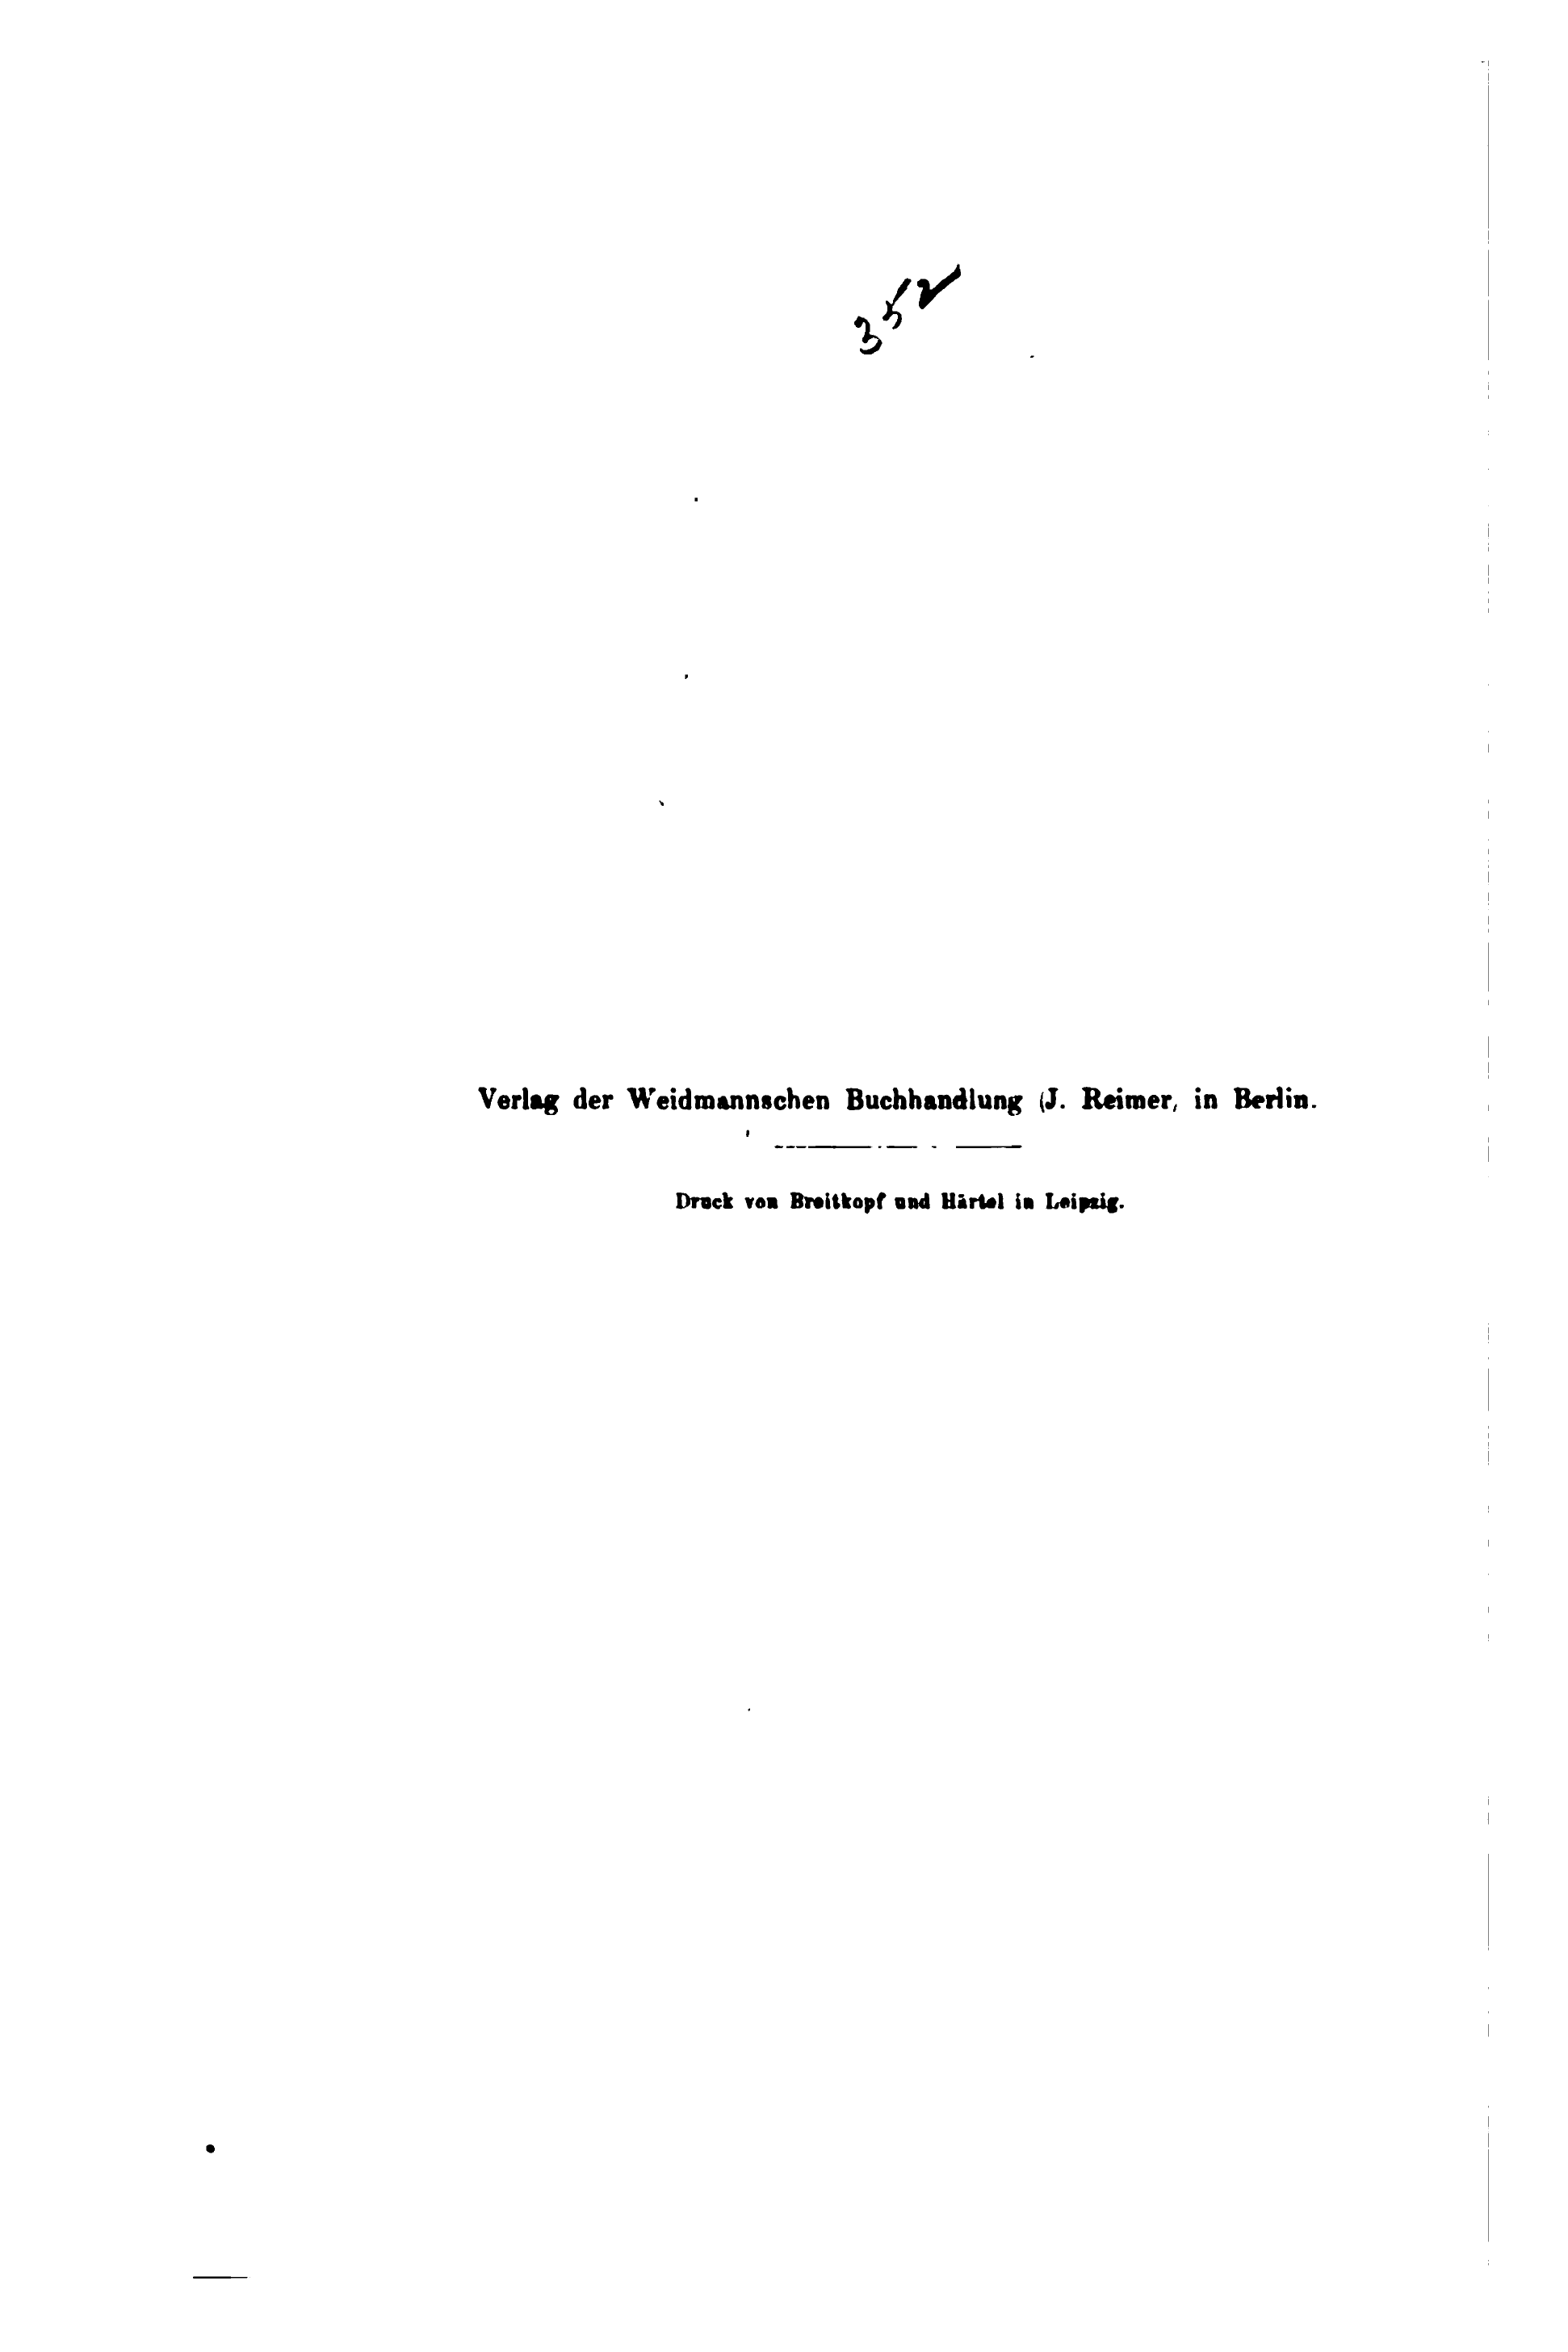 352
Verlag der Weidmannschen Buchhandlung (J. Reimer, in Berlin.
Druck von Breitkopf und Härtel in Leipzig.